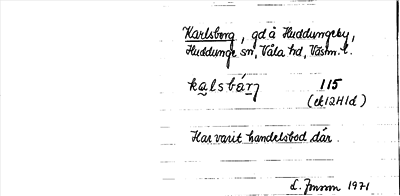 Karlsborg, gd å Huddungeby,
Huddunge sn, Våla hd, Västm. l.
kalsbárj 115
(ek12H1d)
Har varit handelsbod där.
1971